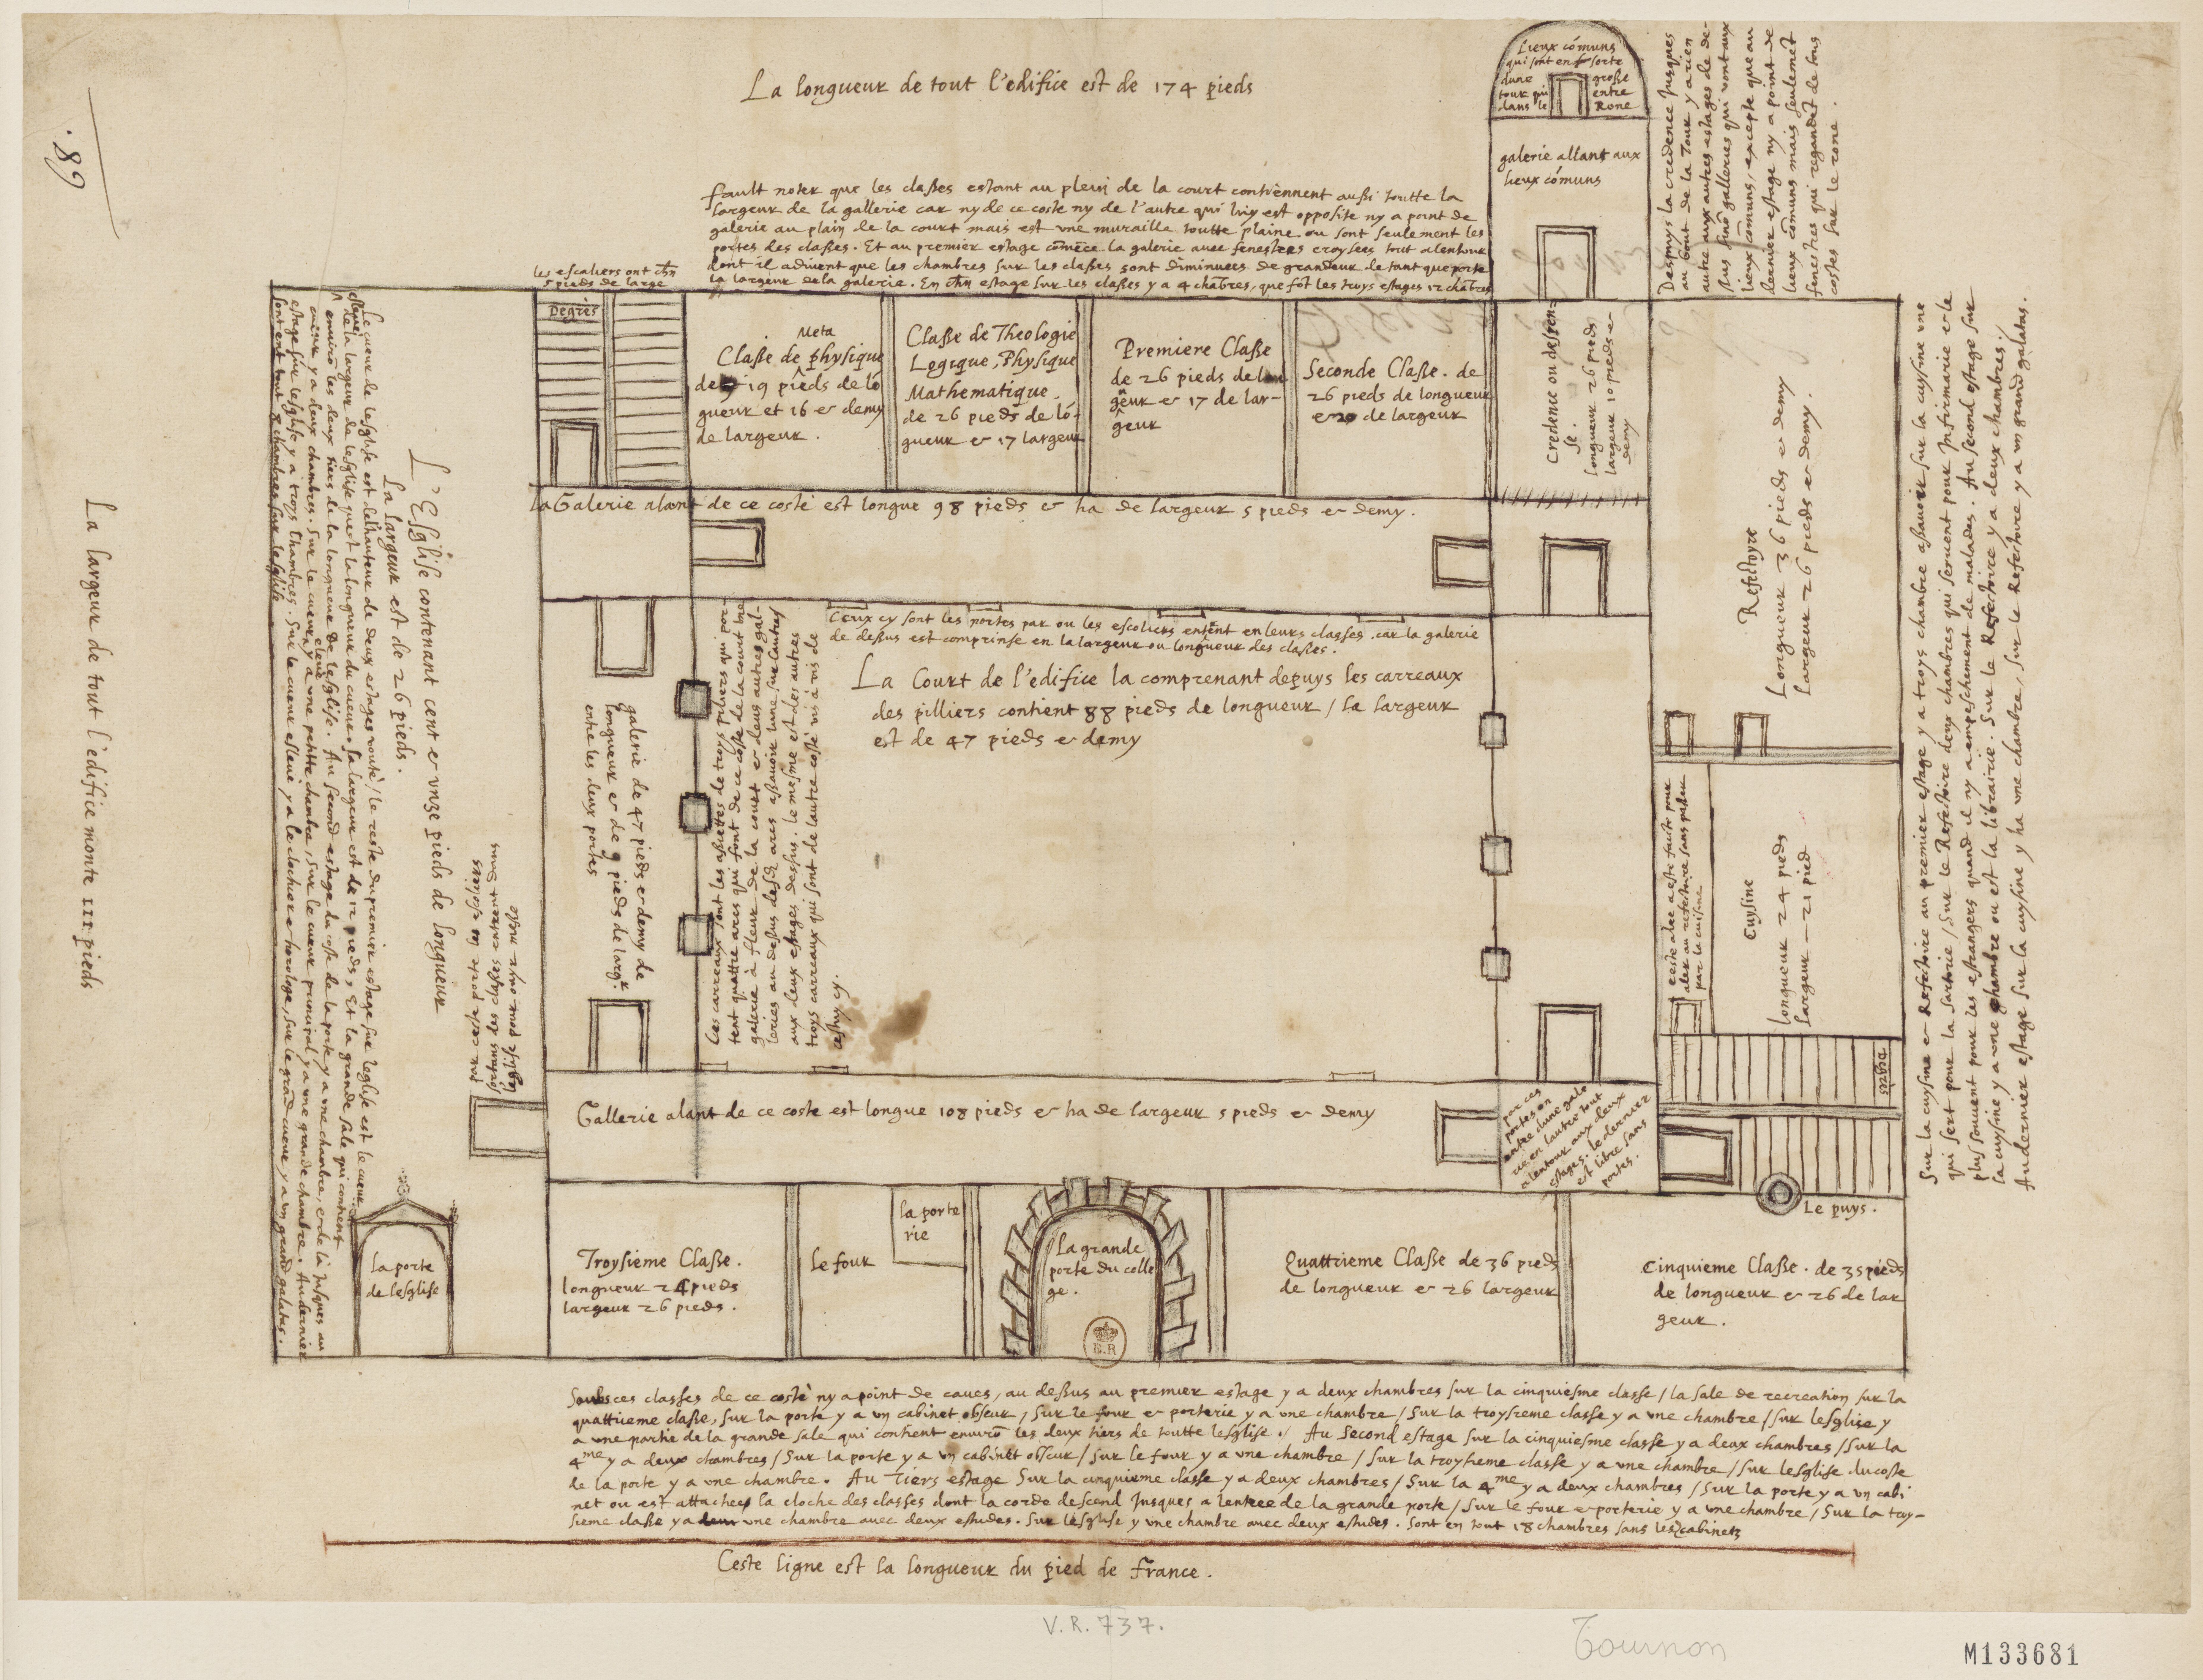 La longueur de tout l'edifice est de 174 pieds
.89
Lieux cómuns
qui sont en sorte
dune grosse
tour qui entre
dans le Rone
galerie allant aux
lieux cómuns
Despuys la credence Jusques
au bout de la Tour y a rien
autre aux autres estages de de-
sus sinō galleries qui vont aux
lieux cōmuns, excepte que au
dernier estage ny a point de
lieux cōmuns mais seulemēt
fenestres qui regardēt de tous
costes sur le rone.
fault noter que les classes estant au plein de la court contiennent aussi toutte la
largeur de la gallerie car ny de ce coste ny de l'autre qui luy est opposite ny a point de
galerie au plain de la court mais est vne muraille toutte plaine ou sont seulement les
portes des classes. Et au premier estage cōmēce la galerie auec fenestres croysees tout alentour
dont il aduient que les chambres sur les classes sont diminuees de grandeur de tant que porte
la largeur de la galerie. En chn estage sur les classes y a 4 chābres, que sōt les troys estages 12 chābres
les escaliers ont chn
5 pieds de large
Degrés
Meta
Classe de physique
de 19 pieds de lō
gueur et 16 et demy
de largeur.
Classe de Theologie
Logique, Physique
Mathematique
de 26 pieds de lō-
gueur et 17 largeur
Premiere Classe
de 26 pieds de lon
geur et 17 de lar-
geur
Seconde Classe. de
26 pieds de longueur
et 20 de largeur
Credence ou despen-
se.
longueur 26 pieds
largeur 10 pieds et
demy
La Galerie alant de ce costé est longue 98 pieds et ha de largeur 5 pieds et demy.
Refectoyre
Longueur 36 pieds et demy
largeur 26 pieds et demy.
Ceux cy sont les portes par ou les escoliers entēnt en leurs classes. car la galerie
de dessus est comprinse en la largeur ou longueur des classes.
La Court de l'edifice la comprenant depuys les carreaux
des pilliers contient 88 pieds de longueur / la largeur
est de 47 pieds et demy
galerie de 47 pieds et demy de
longueur et de 9 pieds de larg.r
entre les deux portes
Ces carreaux sont les assiettes de troys piliers qui por-
tent quattre arcs qui font de ce coste de la court vne
galerie à fleur de la court et deux autres gal-
leries au dessus desd. arcs assauoir lune sur lautre
aux deux estages dessus. le mesme est des autres
troys carreaux qui sont de lautre costé vis à vis de
cestuy cy.
ceste alee a esté faicte pour
aler au refectoire sans passer
par la cuisine
Cuysine
longueur 24 pieds
largeur — 21 pied
Degrés
Le puys.
Sur la cuysine et Refectoire au premier estage y a troys chambre assauoir sur la cuysine vne
qui sert pour la sartorie / sur le Refectoire deux chambres qui seruent pour Infirmarie et le
plus souuent pour les estrangers quand il ny a empeschement de malades. Au second estage sur
la cuysine y a vne chambre ou est la librairie. Sur le Refectoire y a deux chambres /
Au dernier estage sur la cuysine y ha vne chambre, sur le Refectoire y a vn grand galatas.
La largeur de tout l'edifice monte 111 pieds
L'Esglise contenant cent et vnze pieds de longueur
La largeur est de 26 pieds.
Le cueur de lesglise est de la hauteur de deux estages vouté / le reste du premier estage sur leglise est le cueur
esleué de la largeur de lesglise quest la longueur du cueur. sa largeur est de 12 pieds, Et la grande sale qui contient
enuirō les deux tiers de la longueur de lesglise. Au second estage du coste de la porte y a vne chambre, et de là jusques au
cueur y a deux chambres. Sur le cueur esleué y a vne petitte chambre, sur le cueur principal y a vne grande chambre. Au dernier
estage sur lesglise y a troys chambres. Sur le cueur esleué y a le clochier et horologe, sur le grād cueur y a vn grand galatas.
sont en tout 8 chambres sur lesglise
par ceste porte les escoliers
sortans des classes entrent dans
leglise pour ouyr messe
Gallerie alant de ce coste est longue 108 pieds et ha de largeur 5 pieds et demy
par ces
portes on
entre dune gale
rie en lautre tout
alentour aux deux
estages. le dernier
est libre sans
portes.
la porte
de lesglise
Troysieme Classe.
longueur 24 pieds
largeur 26 pieds.
le four
la porte
rie
La grande
porte du colle
ge.
B.R
Quattrieme Classe de 36 pieds
de longueur et 26 largeur
Cinquieme Classe. de 35 pieds
de longueur et 26 de lar
geur.
Soubs ces classes de ce costé ny a point de caues, au dessus au premier estage y a deux chambres sur la cinquiesme classe / la sale de recreation sur la
quattrieme classe, sur la porte y a vn cabinet obscur / sur le four et porterie y a vne chambre / sur la troysieme classe y a vne chambre / sur lesglise y
a vne partie de la grande sale qui contient enuirō les deux tiers de toutte lesglise. / Au Second estage sur la cinquiesme classe y a deux chambres / sur la
4me y a deux chambres / sur la porte y a vn cabinet obscur / sur le four y a vne chambre / sur la troysieme classe y a vne chambre / sur lesglise du coste
de la porte y a vne chambre. Au Tiers estage Sur la cinquieme classe y a deux chambres / sur la 4me y a deux chambres / sur la porte y a vn cabi
net ou est attachee la cloche des classes dont la corde descend jusques a lentree de la grande porte / sur le four et porterie y a vne chambre / sur la troy-
sieme classe y a vne chambre auec deux estudes. Sur lesglise y vne chambre auec deux estudes. Sont en tout 18 chambres sans les cabinets
Ceste ligne est la longueur du pied de france.
V.R. 737.
Tournon
M133681